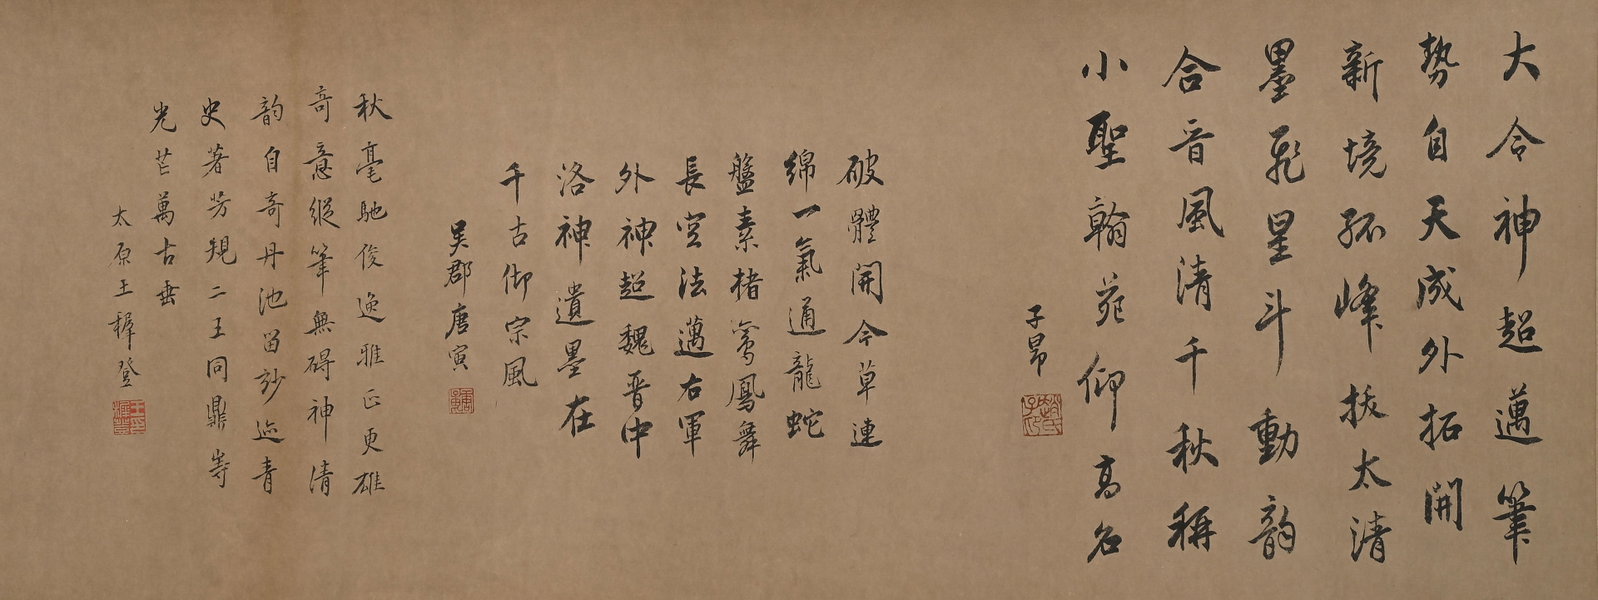 大令神超邁筆
勢自天成外拓開
新境孤峰拔太清
墨飛星斗動韵
合晉風清千秋稱
小聖翰苑仰高名
子昂
趙氏子昂
破體開今草連
綿一氣通龍蛇
盤素楮鸞鳳舞
長空法邁右軍
外神超魏晋中
洛神遺墨在
千古仰宗風
吳郡唐寅
唐寅
秋毫馳俊逸雅正更雄
奇意縱筆無碍神清
韵自奇丹池留妙迹青
史著芳規二王同鼎峙
光芒萬古垂
太原王穉登